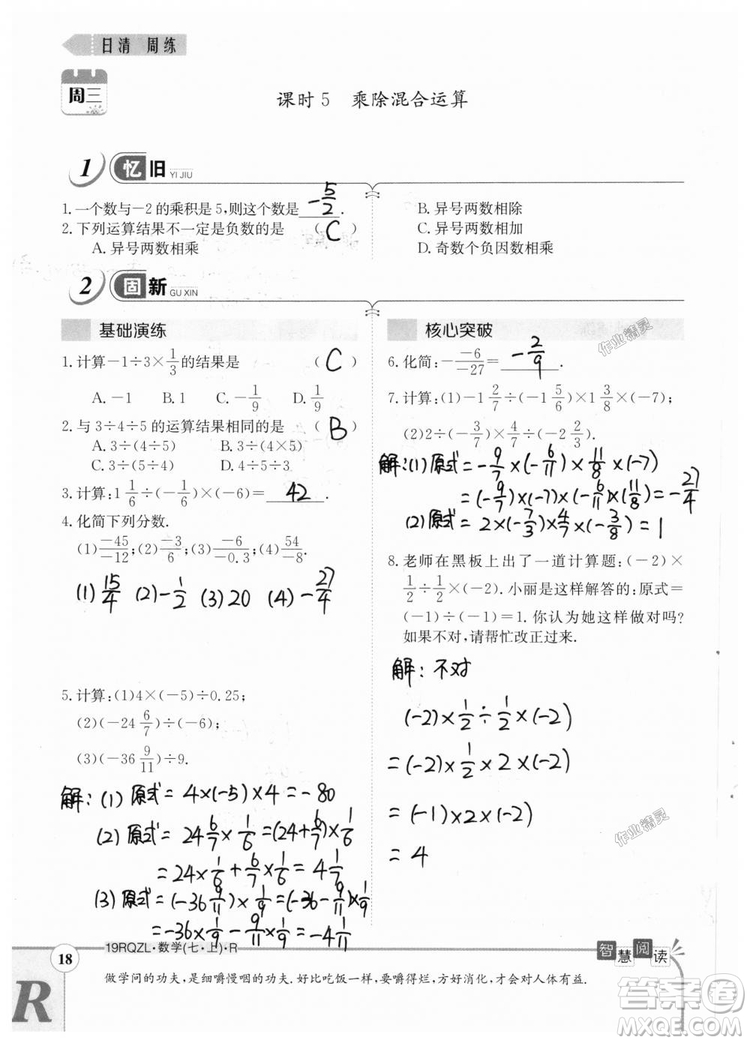 日清 周练
周三
课时5 乘除混合运算
1 忆旧 YI JIU
1.一个数与-2的乘积是5,则这个数是 -5/2 .
2.下列运算结果不一定是负数的是 ( C )
A.异号两数相乘
B.异号两数相除
C.异号两数相加
D.奇数个负因数相乘
2 固新 GU XIN
基础演练
1.计算-1÷3×1/3的结果是 ( C )
A.-1 B.1 C.-1/9 D.1/9
2.与3÷4÷5的运算结果相同的是 ( B )
A.3÷(4÷5) B.3÷(4×5)
C.3÷(5÷4) D.4÷3÷5
3.计算:1 1/6÷(-1/6)×(-6)= 42 .
4.化简下列分数.
(1)-45/-12;(2)-3/6;(3)-6/-0.3;(4)54/-8.
(1) 15/4 (2) -1/2 (3) 20 (4) -27/4
5.计算:(1)4×(-5)÷0.25;
(2)(-24 6/7)÷(-6);
(3)(-36 9/11)÷9.
解: (1) 原式 = 4×(-5)×4 = -80
(2) 原式 = 24 6/7×1/6 = (24+6/7)×1/6
= 24×1/6+6/7×1/6
(3) 原式 = (-36 9/11)×1/9 = (-36-9/11)×1/9
= -36×1/9-9/11×1/9
核心突破
6.化简:--6/-27= -2/9 .
7.计算:(1)-1 2/7÷(-1 5/6)×1 3/8×(-7);
(2)2÷(-3/7)×4/7÷(-2 2/3).
解: (1) 原式 = -9/7×(-6/11)×11/8×(-7)
= (-9/7)×(-7)×(-6/11)×(11/8) = -27/4
(2) 原式 = 2×(-7/3)×4/7×(-3/8) = 1
8.老师在黑板上出了一道计算题:(-2)×
1/2÷1/2×(-2).小丽是这样解答的:原式=
(-1)÷(-1)=1.你认为她这样做对吗?
如果不对,请帮忙改正过来.
解: 不对
(-2)×1/2÷1/2×(-2)
= (-2)×1/2×2×(-2)
= (-1)×2×(-2)
= 4
作业精灵
作业精灵
18
19RQZL·数学(七·上)·R
智慧阅读
做学问的功夫，是细嚼慢咽的功夫.好比吃饭一样，要嚼得烂，方好消化，才会对人体有益.
R
答案圈
MXQE.COM